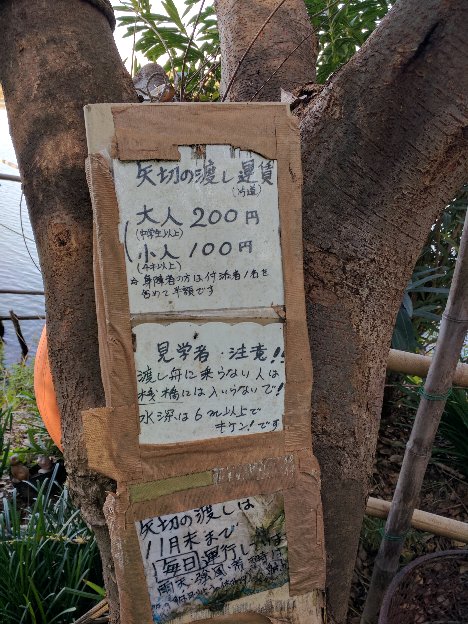 矢切の渡し運賃
(片道)
大人 200円
(中学生以上)
小人 100円
(4才以上)
☆身障者の方は付添者1名を
含めて半額です
見学者・注意!!
渡し舟に乗らない人は
桟橋には入いらないで!
水深は6m以上で
キケン!です
矢切の渡しは
11月末まで
毎日運行し
雨天・強風・